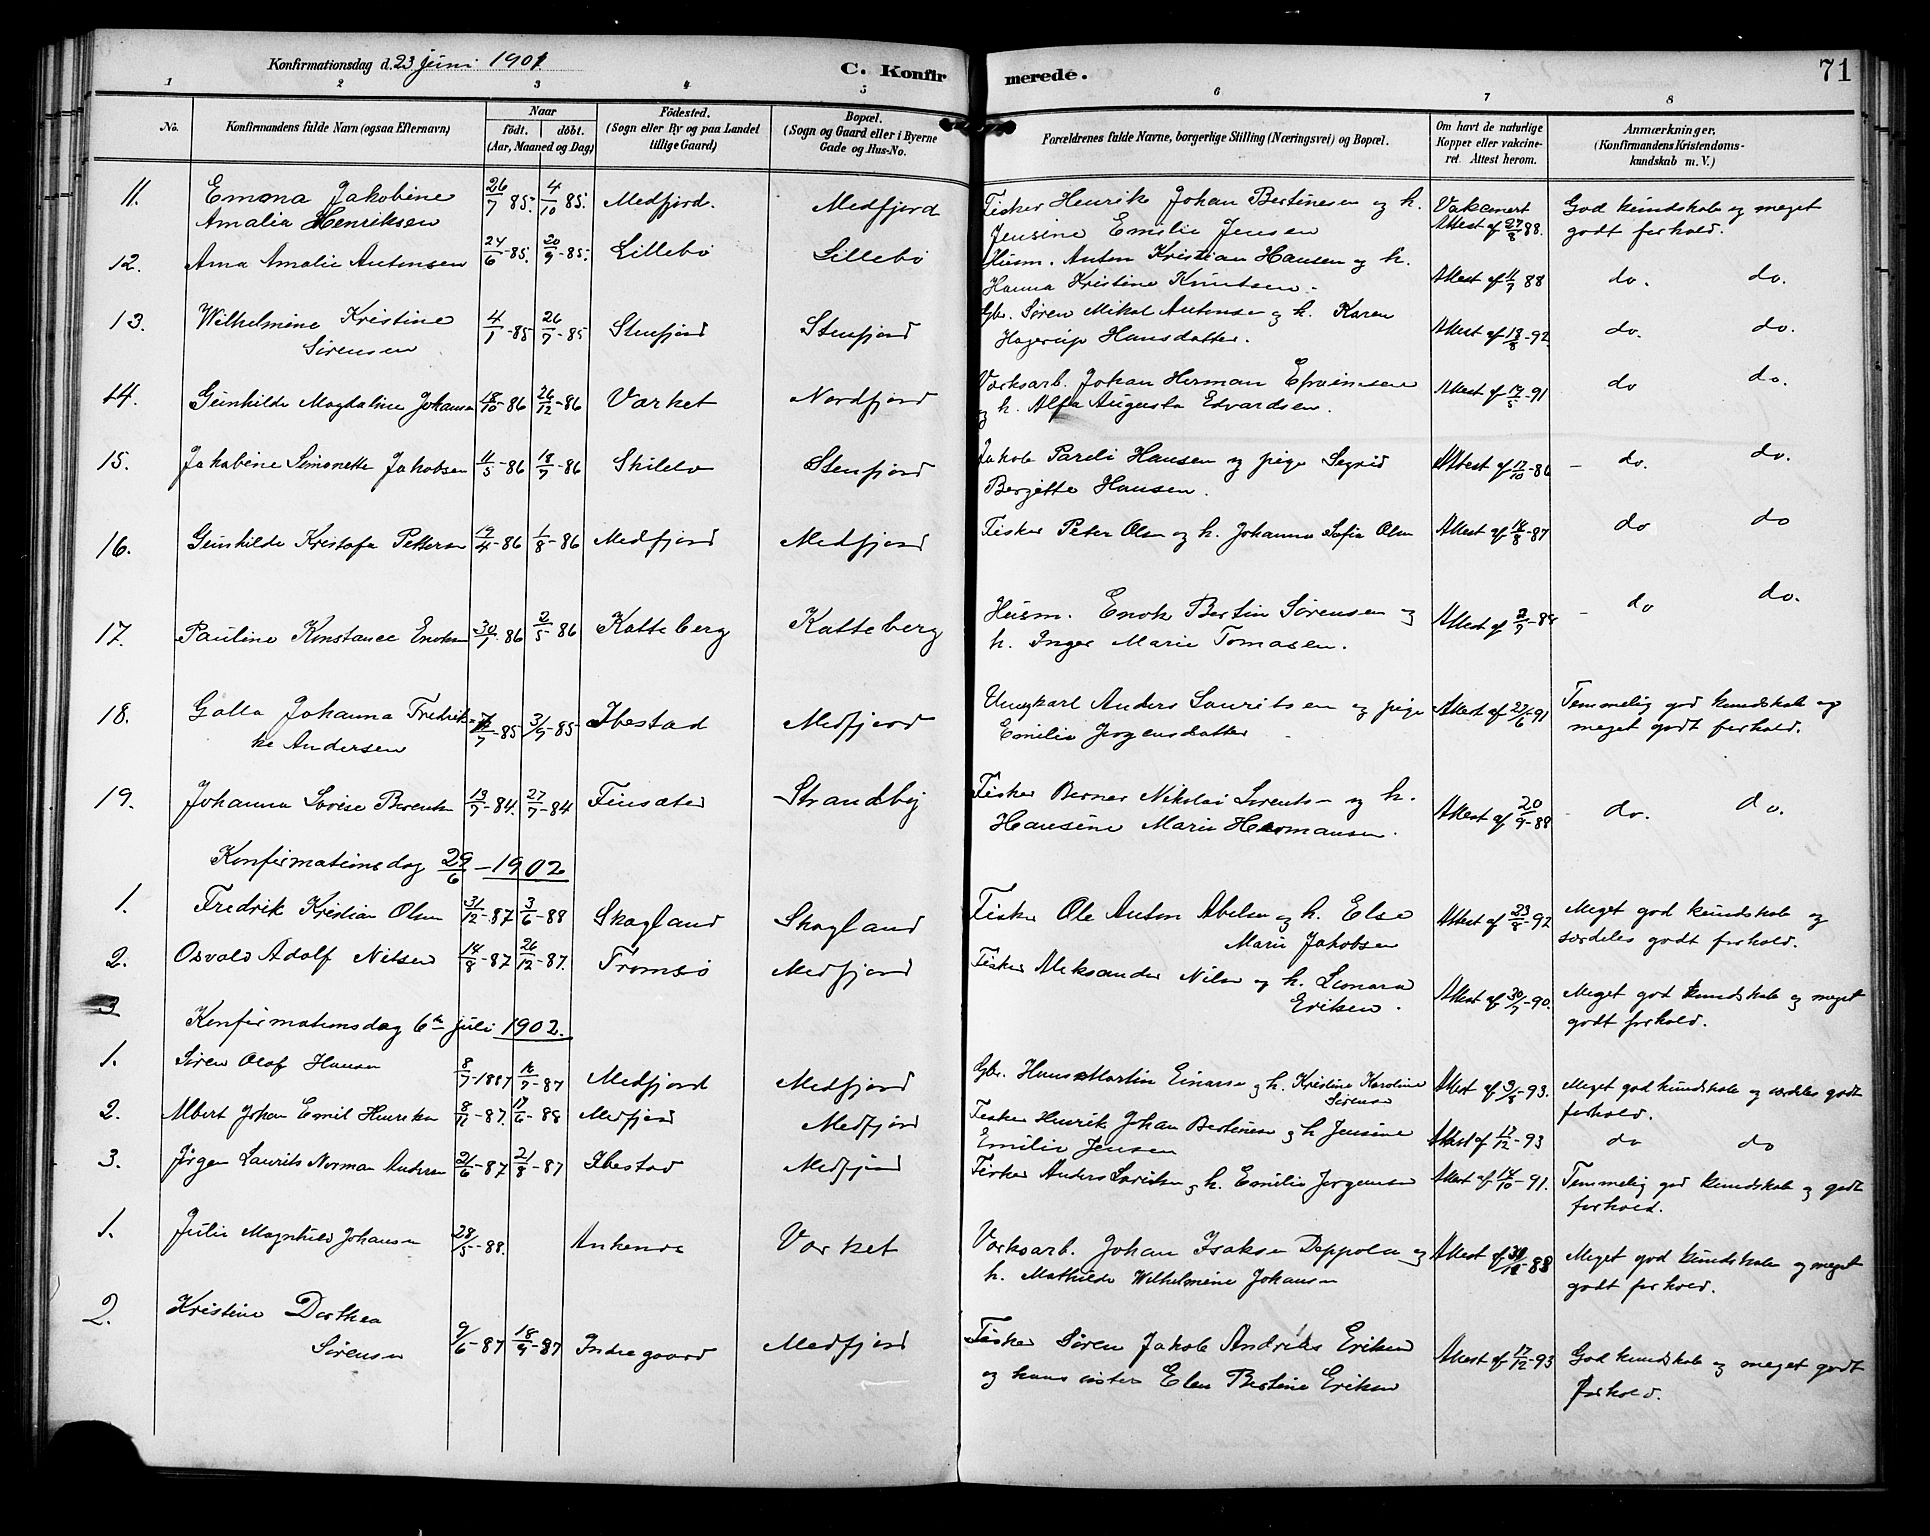 Konfirmationsdag d. 23 juni 1901.
C. Konfirmerede.
71
1 2 3 4 5 6 7 8
No.
Konfirmandens fulde Navn (ogsaa Efternavn)
Naar
födt. döbt.
(Aar, Maaned og Dag)
Födested.
(Sogn eller By og paa Landet
tillige Gaard)
Bopæl.
(Sogn og Gaard eller i Byerne
Gade og Hus-No.
Forældrenes fulde Navne, borgerlige Stilling (Næringsvei) og Bopæl.
Om havt de naturlige
Kopper eller vakcine-
ret. Attest herom.
Anmærkninger.
(Konfirmandens Kristendoms-
kundskab m. V.)
11. Emma Jakobine 26/7 85. 4/10 85. Medfjord. Medfjord Fisker Henrik Johan Bertinesen og h. Vakcinert God kundskab og meget
Amalia Henriksen Jensine Emilie Jensen Attest af 27/8 88. godt forhold.
12. Anna Amalie Antonsen 24/6-85. 20/9-85. Lillebø Lillebø Husm. Anton Kristian Hansen og h. Attest af 11/7 88 do. do.
Hanna Kristine Knutsen.
13. Wilhelmine Kristine 4/1-85 26/7-85 Stenfjord Stenfjord Gbr. Søren Mikal Antonse og h. Karen Attest af 18/8-92. do. do.
Sørensen Hagerup Hansdatter.
14. Gunhilde Magdaline Johansen 18/10-86 26/12-86 Varket Nordfjord Verksarb. Johan Herman Efraimsen Attest af 17/5-91 do do.
og h. Alfa Augusta Edvardsen.
15. Jakobine Simonette Jakobsen 11/5-86 18/7-86 Skilebo Stenfjord Jakob Pareli Hansen og pige Segrid Attest af 17/10-86 - do. do.
Bergitte Hansen.
16. Gunhilde Kristofa Pettersen 19/4-86 1/8-86 Medfjord Medfjord Fisker Peter Olsen og h. Johanna Sofia Olsen Attest af 14/8-87 do do
17. Pauline Konstance Enoksen 30/1-86 2/5-86 Katteberg Katteberg Husm. Enok Bertin Sørensen og Attest af 2/7-88 - do do.
h. Inger Marie Tomasen.
18. Golla Johanna Fredrik- /7-85 3/9-85 Ibestad Medfjord Ungkarl Anders Lauritsen og pige Attest af 27/6-91 Temmelig god kundskab og
ke Andersen Emilie Jørgensdatter meget godt forhold.
19. Johanna Lovise Berentsen 13/7-84. 27/7-84 Finsæter Strandbej Fisker Berner Nikolai Lorents- og h. Attest af 20/9-88 - do. do.
Hansine Marie Hermansen.
Konfirmationsdag 29/6-1902
1. Fredrik Kristian Olsen 31/12-87 3/6-88 Skogland Skogland Fisker Ole Anton Abelsen og h. Else Attest af 23/8-92 Meget god kundskab og
Marie Jakobsen særdeles godt forhold.
2. Osvald Adolf Nilsen 14/8-87 26/12-87. Tromsø Medfjord Fisker Aleksander Nilsen og h. Lenara Attest af 30/7-90. Meget god kundskab og meget
Eriksen. godt forhold.
3
Konfirmationsdag 6te juli 1902.
1. Søren Olaf Hansen 8/7-1887 /7-87 Medfjord Medfjord Gbr. Hans Martin Einarsen og h. Kristine Karoline Attest af 3/8-93. Meget god kundskab og særdeles godt
Sørensen forhold.
2. Albert Johan Emil Henriksen 8/12-87. 17/6-88 Medfjord Medfjord Fisker Henrik Johan Bertinesen og h Jensine Attest af 17/12-93 do do
Emilie Jensen
3. Jørgen Laurits Norman Andersen 21/6-87 21/8-87 Ibestad Medfjord Fisker Anders Loritsen og h. Emilie Jørgensen Attest af 14/10-91. Temmelig god kundskab og godt
forhold.
1. Julie Magnhild Johansen 28/5-88. Ankenes Varket Verksarb. Johan Isaksen Doppola og Attest af 30/12-88 Meget god kundskab og meget
h. Mathilde Wilhelmine Johansen godt forhold.
2. Kristine Dorthea 9/6-87 18/9-87 Indregaard Medfjord Fisker Søren Jakob Andreas Eriksen Attest af 17/12-93 God kundskab og meget godt
Sørensen og hans søster Elen Bertine Eriksen forhold.